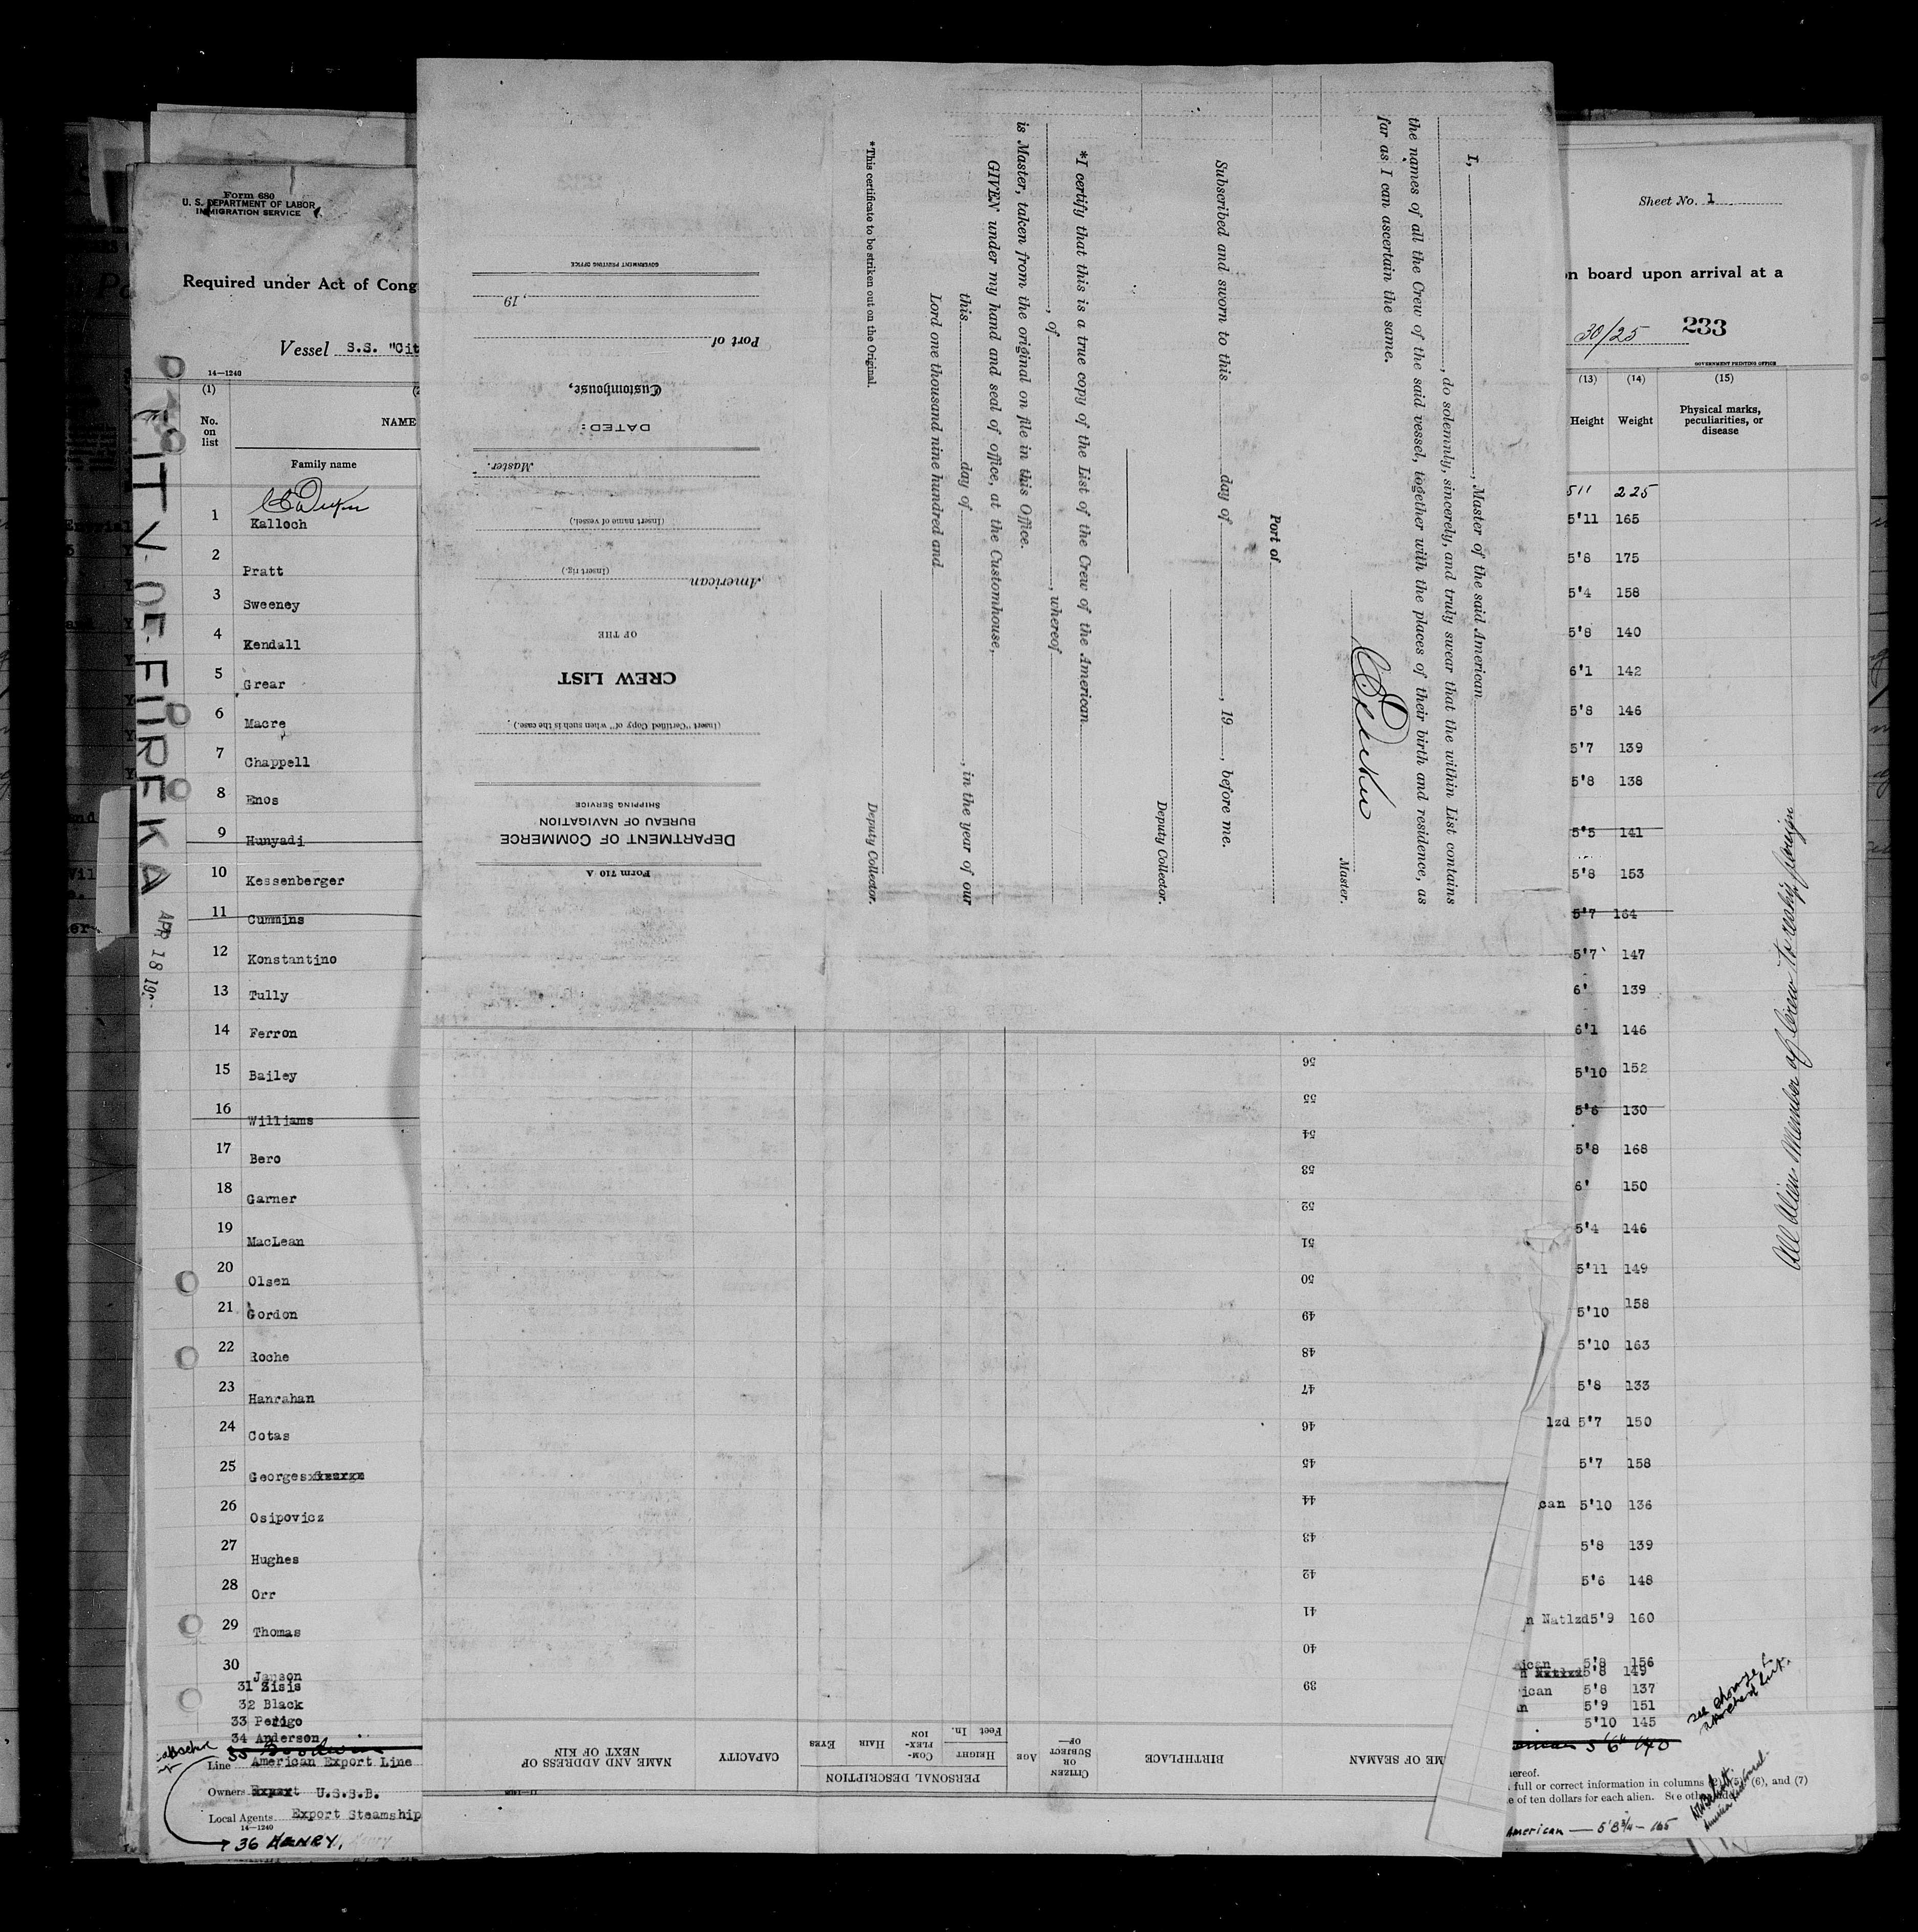 Form 680
U. S. DEPARTMENT OF LABOR
IMMIGRATION SERVICE
Required under Act of Cong
Vessel S.S. "Cit
14—1240
(1)
No. on list
NAME
Family name
1 Kalloch
2 Pratt
3 Sweeney
4 Kendall
5 Grear
6 Macre
7 Chappell
8 Enos
9 Hunyadi
10 Kessenberger
11 Cummins
12 Konstantino
13 Tully
14 Ferron
15 Bailey
16 Williams
17 Bero
18 Garner
19 MacLean
20 Olsen
21 Gordon
22 Roche
23 Hanrahan
24 Cotas
25 Georges
26 Osipovicz
27 Hughes
28 Orr
29 Thomas
30 Janson
31 Zisis
32 Black
33 Perigo
34 Anderson
35
Line American Export Line
Owners U.S.S.B.
Local Agents Export Steamship
14—1240
36 HENRY,
CITY OF EUREKA
APR 18 19
I, , Master of the said American
, do solemnly, sincerely, and truly swear that the within List contains
the names of all the Crew of the said vessel, together with the places of their birth and residence, as
far as I can ascertain the same.
Master.
Port of
Subscribed and sworn to this day of , 19 , before me.
Deputy Collector.
*I certify that this is a true copy of the List of the Crew of the American
, of , whereof
is Master, taken from the original on file in this Office.
GIVEN under my hand and seal of office, at the Customhouse,
this day of , in the year of our
Lord one thousand nine hundred and
Deputy Collector.
*This certificate to be striken out on the Original.
Form 710 A
DEPARTMENT OF COMMERCE
BUREAU OF NAVIGATION
SHIPPING SERVICE
(Insert "Certified Copy of" when such is the case.)
CREW LIST
OF THE
American
(Insert rig.)
(Insert name of vessel.)
Master.
DATED:
Customhouse,
Port of
, 19
GOVERNMENT PRINTING OFFICE
ME OF SEAMAN
BIRTHPLACE
CITIZEN OR SUBJECT OF—
PERSONAL DESCRIPTION
AGE
HEIGHT
Feet In.
COM-PLEX-ION
HAIR
EYES
CAPACITY
NAME AND ADDRESS OF NEXT OF KIN
39
40
41
42
43
44
45
46
47
48
49
50
51
52
53
54
55
56
Sheet No. 1
on board upon arrival at a
30/25 233
GOVERNMENT PRINTING OFFICE
(13) (14) (15)
Height Weight Physical marks, peculiarities, or disease
5 11 225
5'11 165
5'8 175
5'4 158
5'8 140
6'1 142
5'8 146
5'7 139
5'8 138
5'5 141
5'8 153
5'7 164
5'7 147
6' 139
6'1 146
5'10 152
5'6 130
5'8 168
6' 150
5'4 146
5'11 149
5'10 158
5'10 163
5'8 133
lzd 5'7 150
5'7 158
can 5'10 136
5'8 139
5'6 148
n Natlzd 5'9 160
ican 5'8 156
5'8 149
ican 5'8 137
an 5'9 151
5'10 145
5'6" 140
hereof.
full or correct information in columns (2), (5), (6), and (7)
e of ten dollars for each alien. See other side
American — 5'8¾ — 165
All Alien Member of Crew to reship foreign